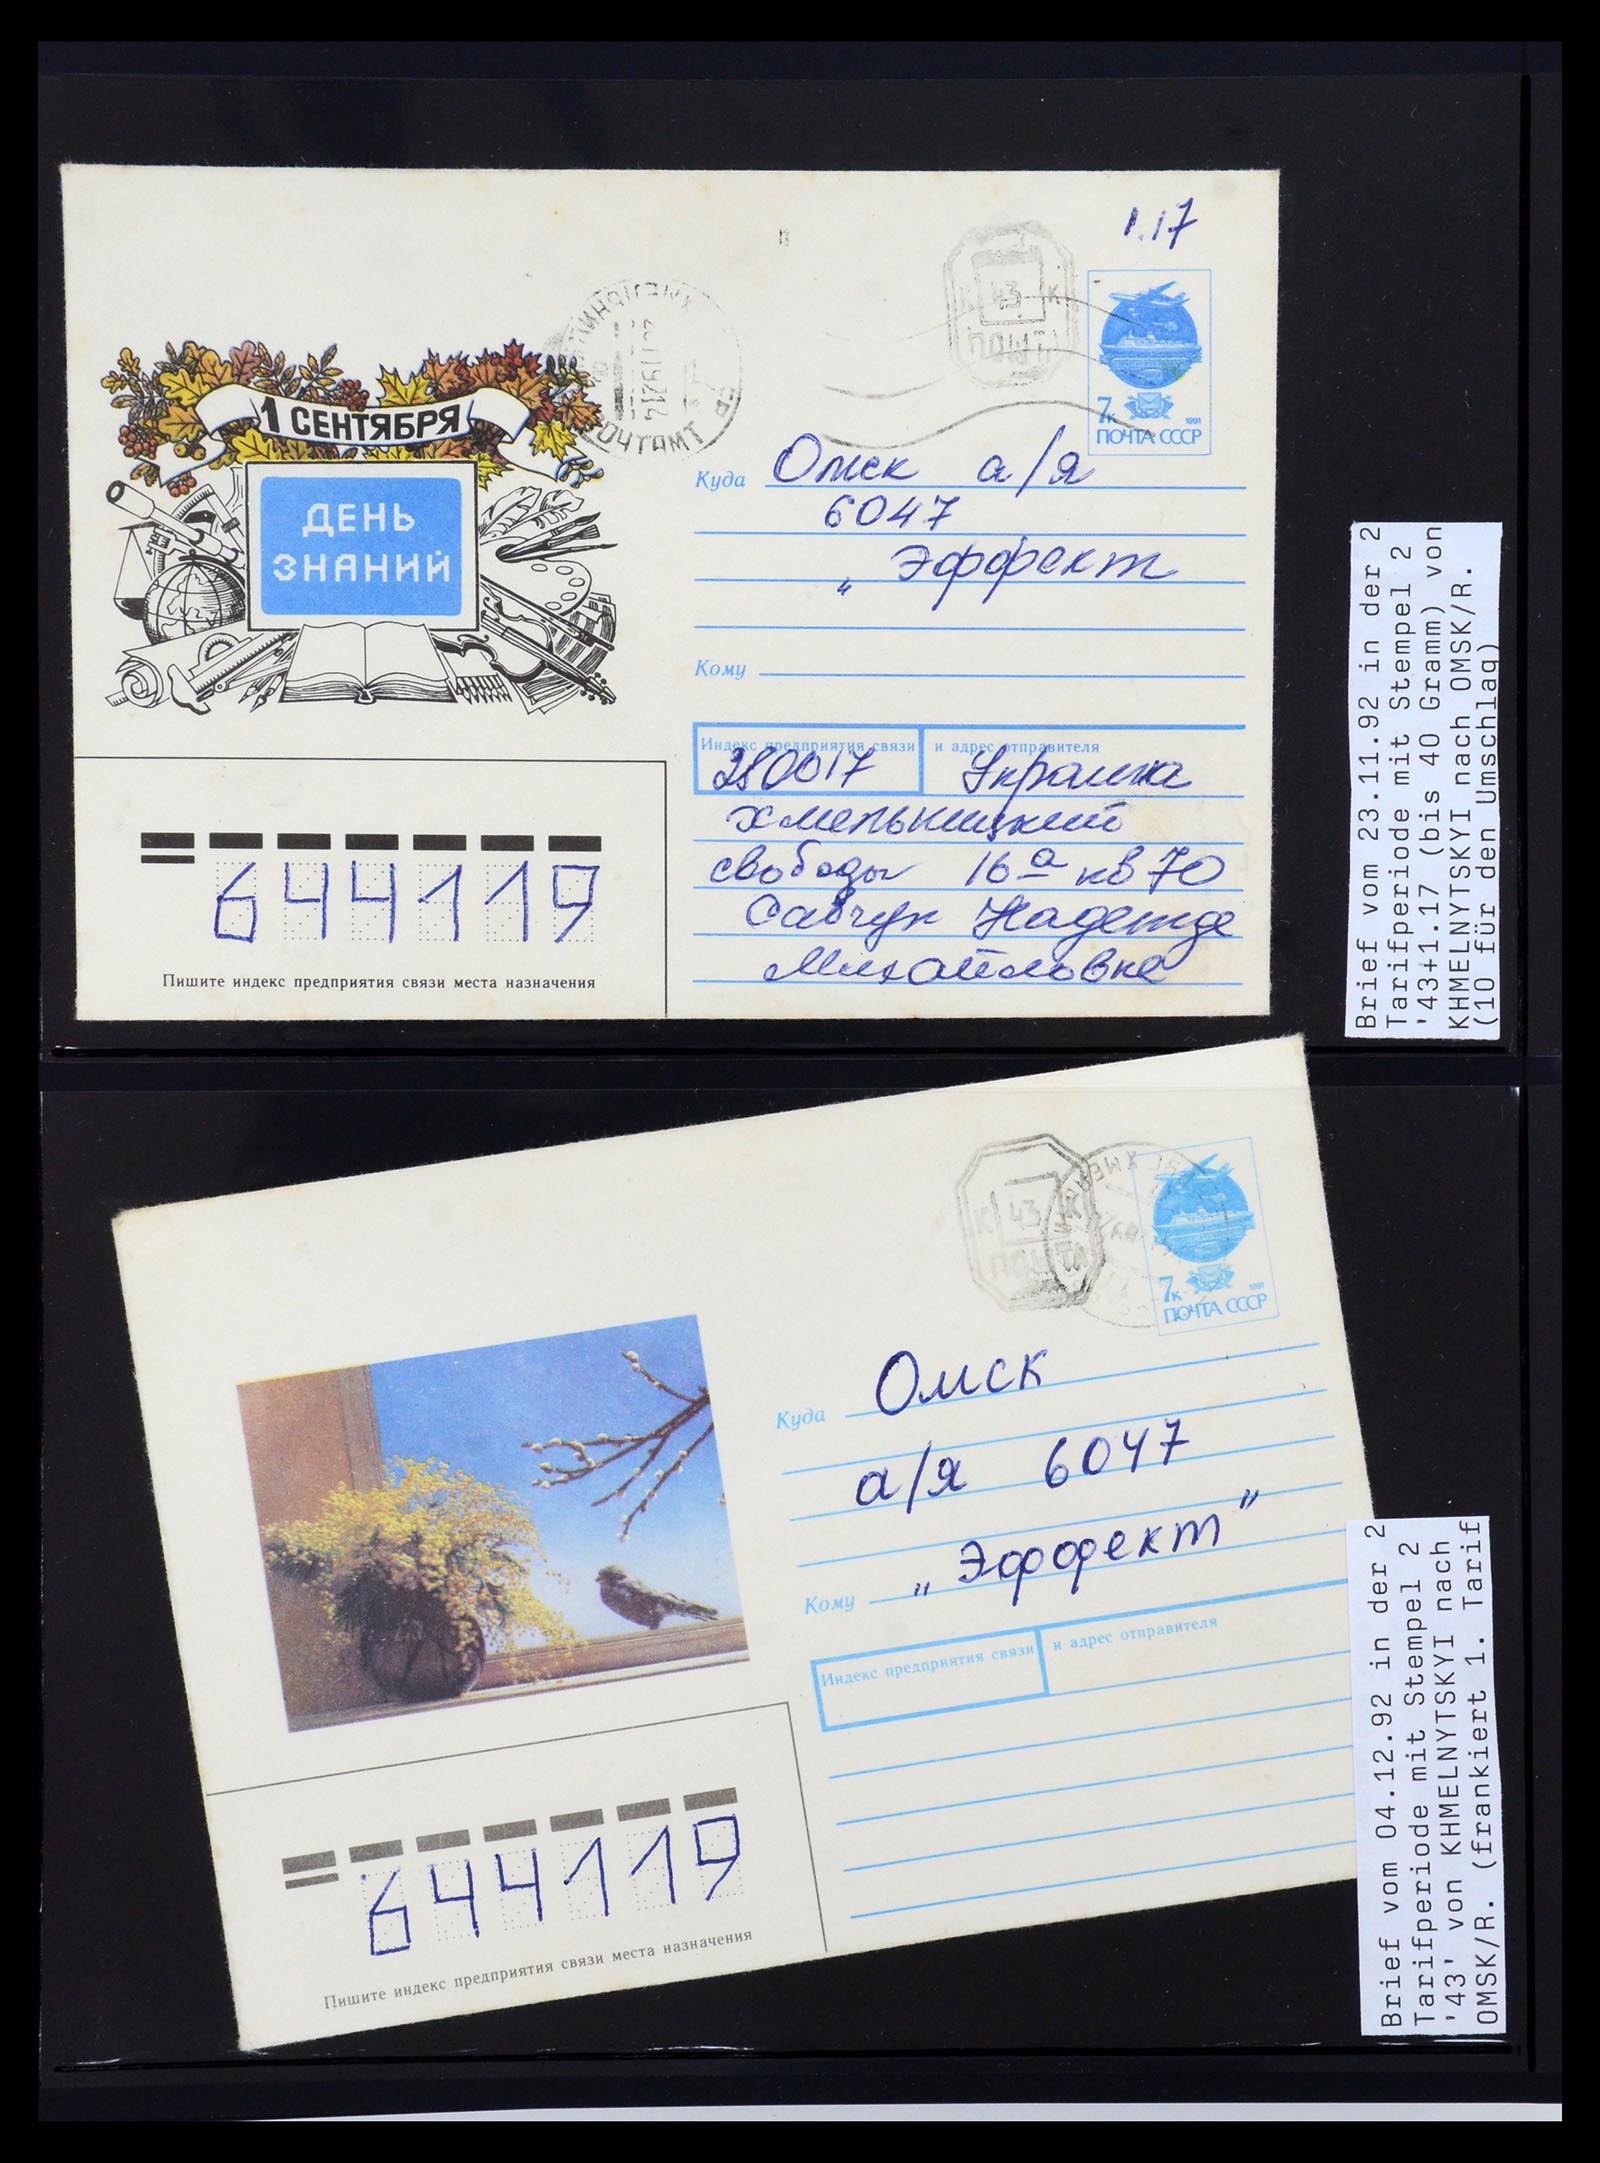 1.17
К 43 К
ПОШТА
ПОЧТАМТ
7к 1991
ПОЧТА СССР
1 СЕНТЯБРЯ
ДЕНЬ
ЗНАНИЙ
Куда Омск а/я
6047
„ Эффект
Кому
Индекс предприятия связи и адрес отправителя
280017 Украина
Хмельницкий
свободы 16а кв 70
Савчук Надежде
Михайловне
644119
Пишите индекс предприятия связи места назначения
Brief vom 23.11.92 in der 2
Tarifperiode mit Stempel 2
'43+1.17 (bis 40 Gramm) von
KHMELNYTSKYI nach OMSK/R.
(10 für den Umschlag)
К 43 К
ПОШТА
7к 1991
ПОЧТА СССР
Куда Омск
а/я 6047
Кому „Эффект"
Индекс предприятия связи и адрес отправителя
644119
Пишите индекс предприятия связи места назначения
Brief vom 04.12.92 in der 2
Tarifperiode mit Stempel 2
'43' von KHMELNYTSKYI nach
OMSK/R. (frankiert 1. Tarif